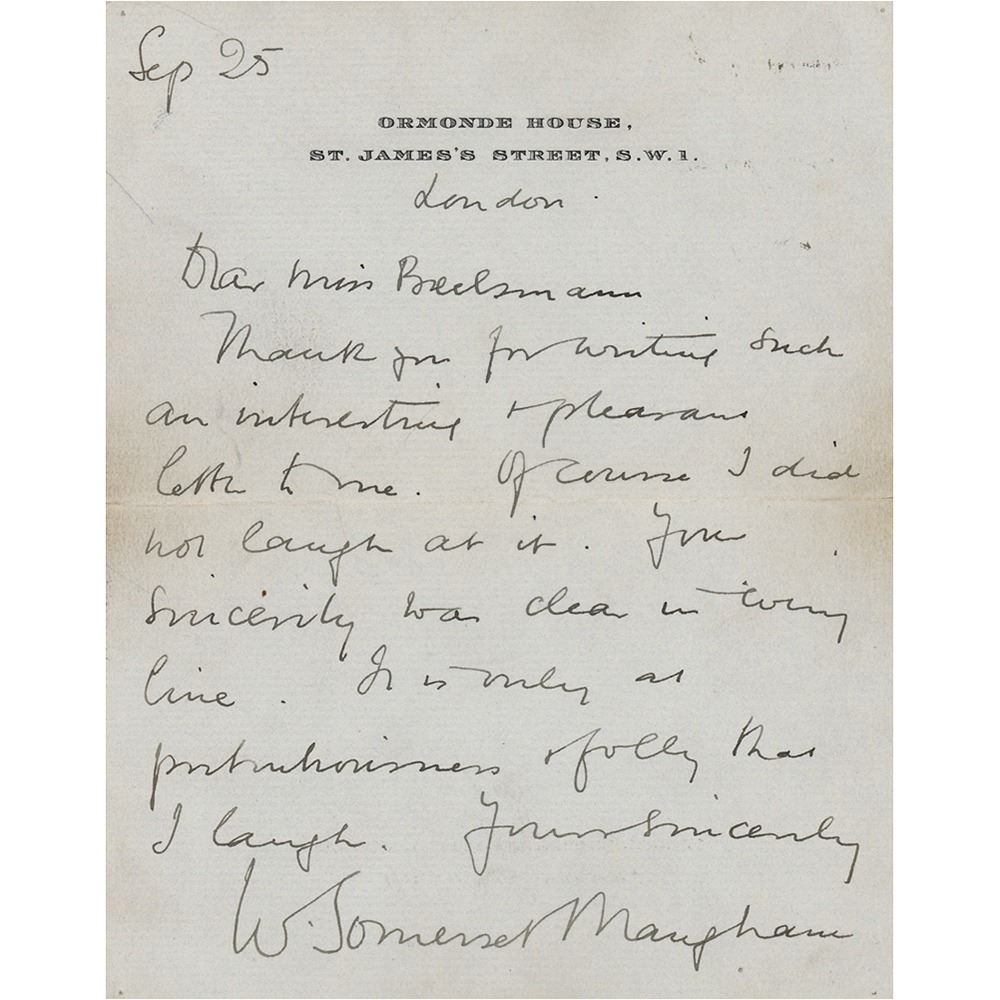 Sep 25
ORMONDE HOUSE,
ST. JAMES'S STREET, S.W.1.
London.
Dear Miss
Thank you for writing such
an interesting + pleasant
letter to me. Of course I did
not laugh at it. Your
sincerity was clear in every
line. It is only at
pretentiousness + folly that
I laugh. Yours sincerely
W. Somerset Maugham